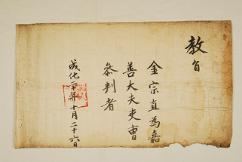 教旨
金宗直為嘉
善大夫吏曹
參判者
成化年十月二十六日